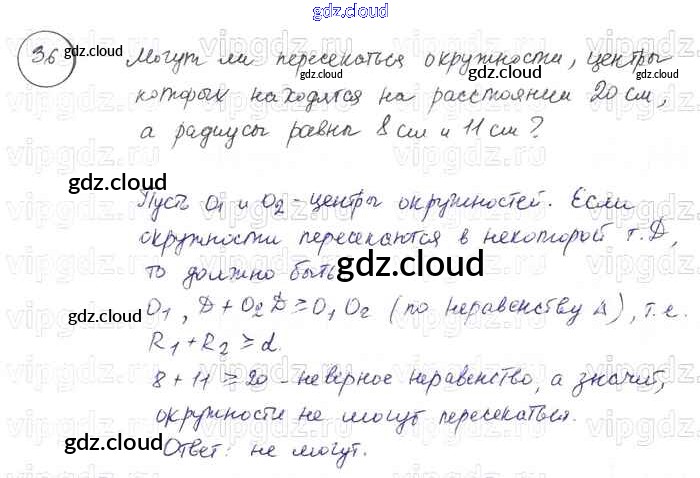 gdz.cloud
36 Могут ли пересекаться окружности, центры
которых находятся на расстоянии 20 см,
а радиусы равны 8 см и 11 см?
gdz.cloud
Пусть O1 и O2 - центры окружностей. Если
окружности пересекаются в некоторой т. D,
то должно быть
gdz.cloud
O1, D + O2 D ≥ O1 O2 (по неравенству Δ), т.е.
R1 + R2 ≥ d.
8 + 11 ≥ 20 - неверное неравенство, а значит,
окружности не могут пересекаться.
gdz.cloud
Ответ: не могут.